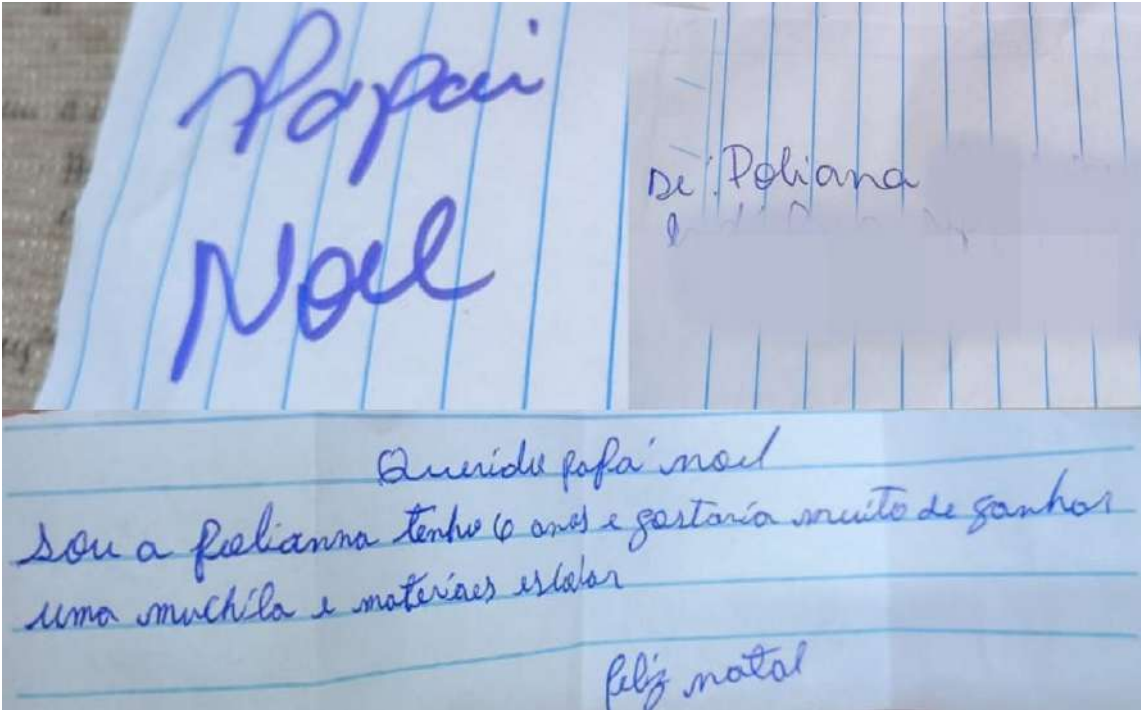 Papai
Noel
De: Poliana
Querido papá noel
sou a Polianna tenho 6 anos e gostaria muito de ganhar
uma muchila e materiaes escolar
feliz natal